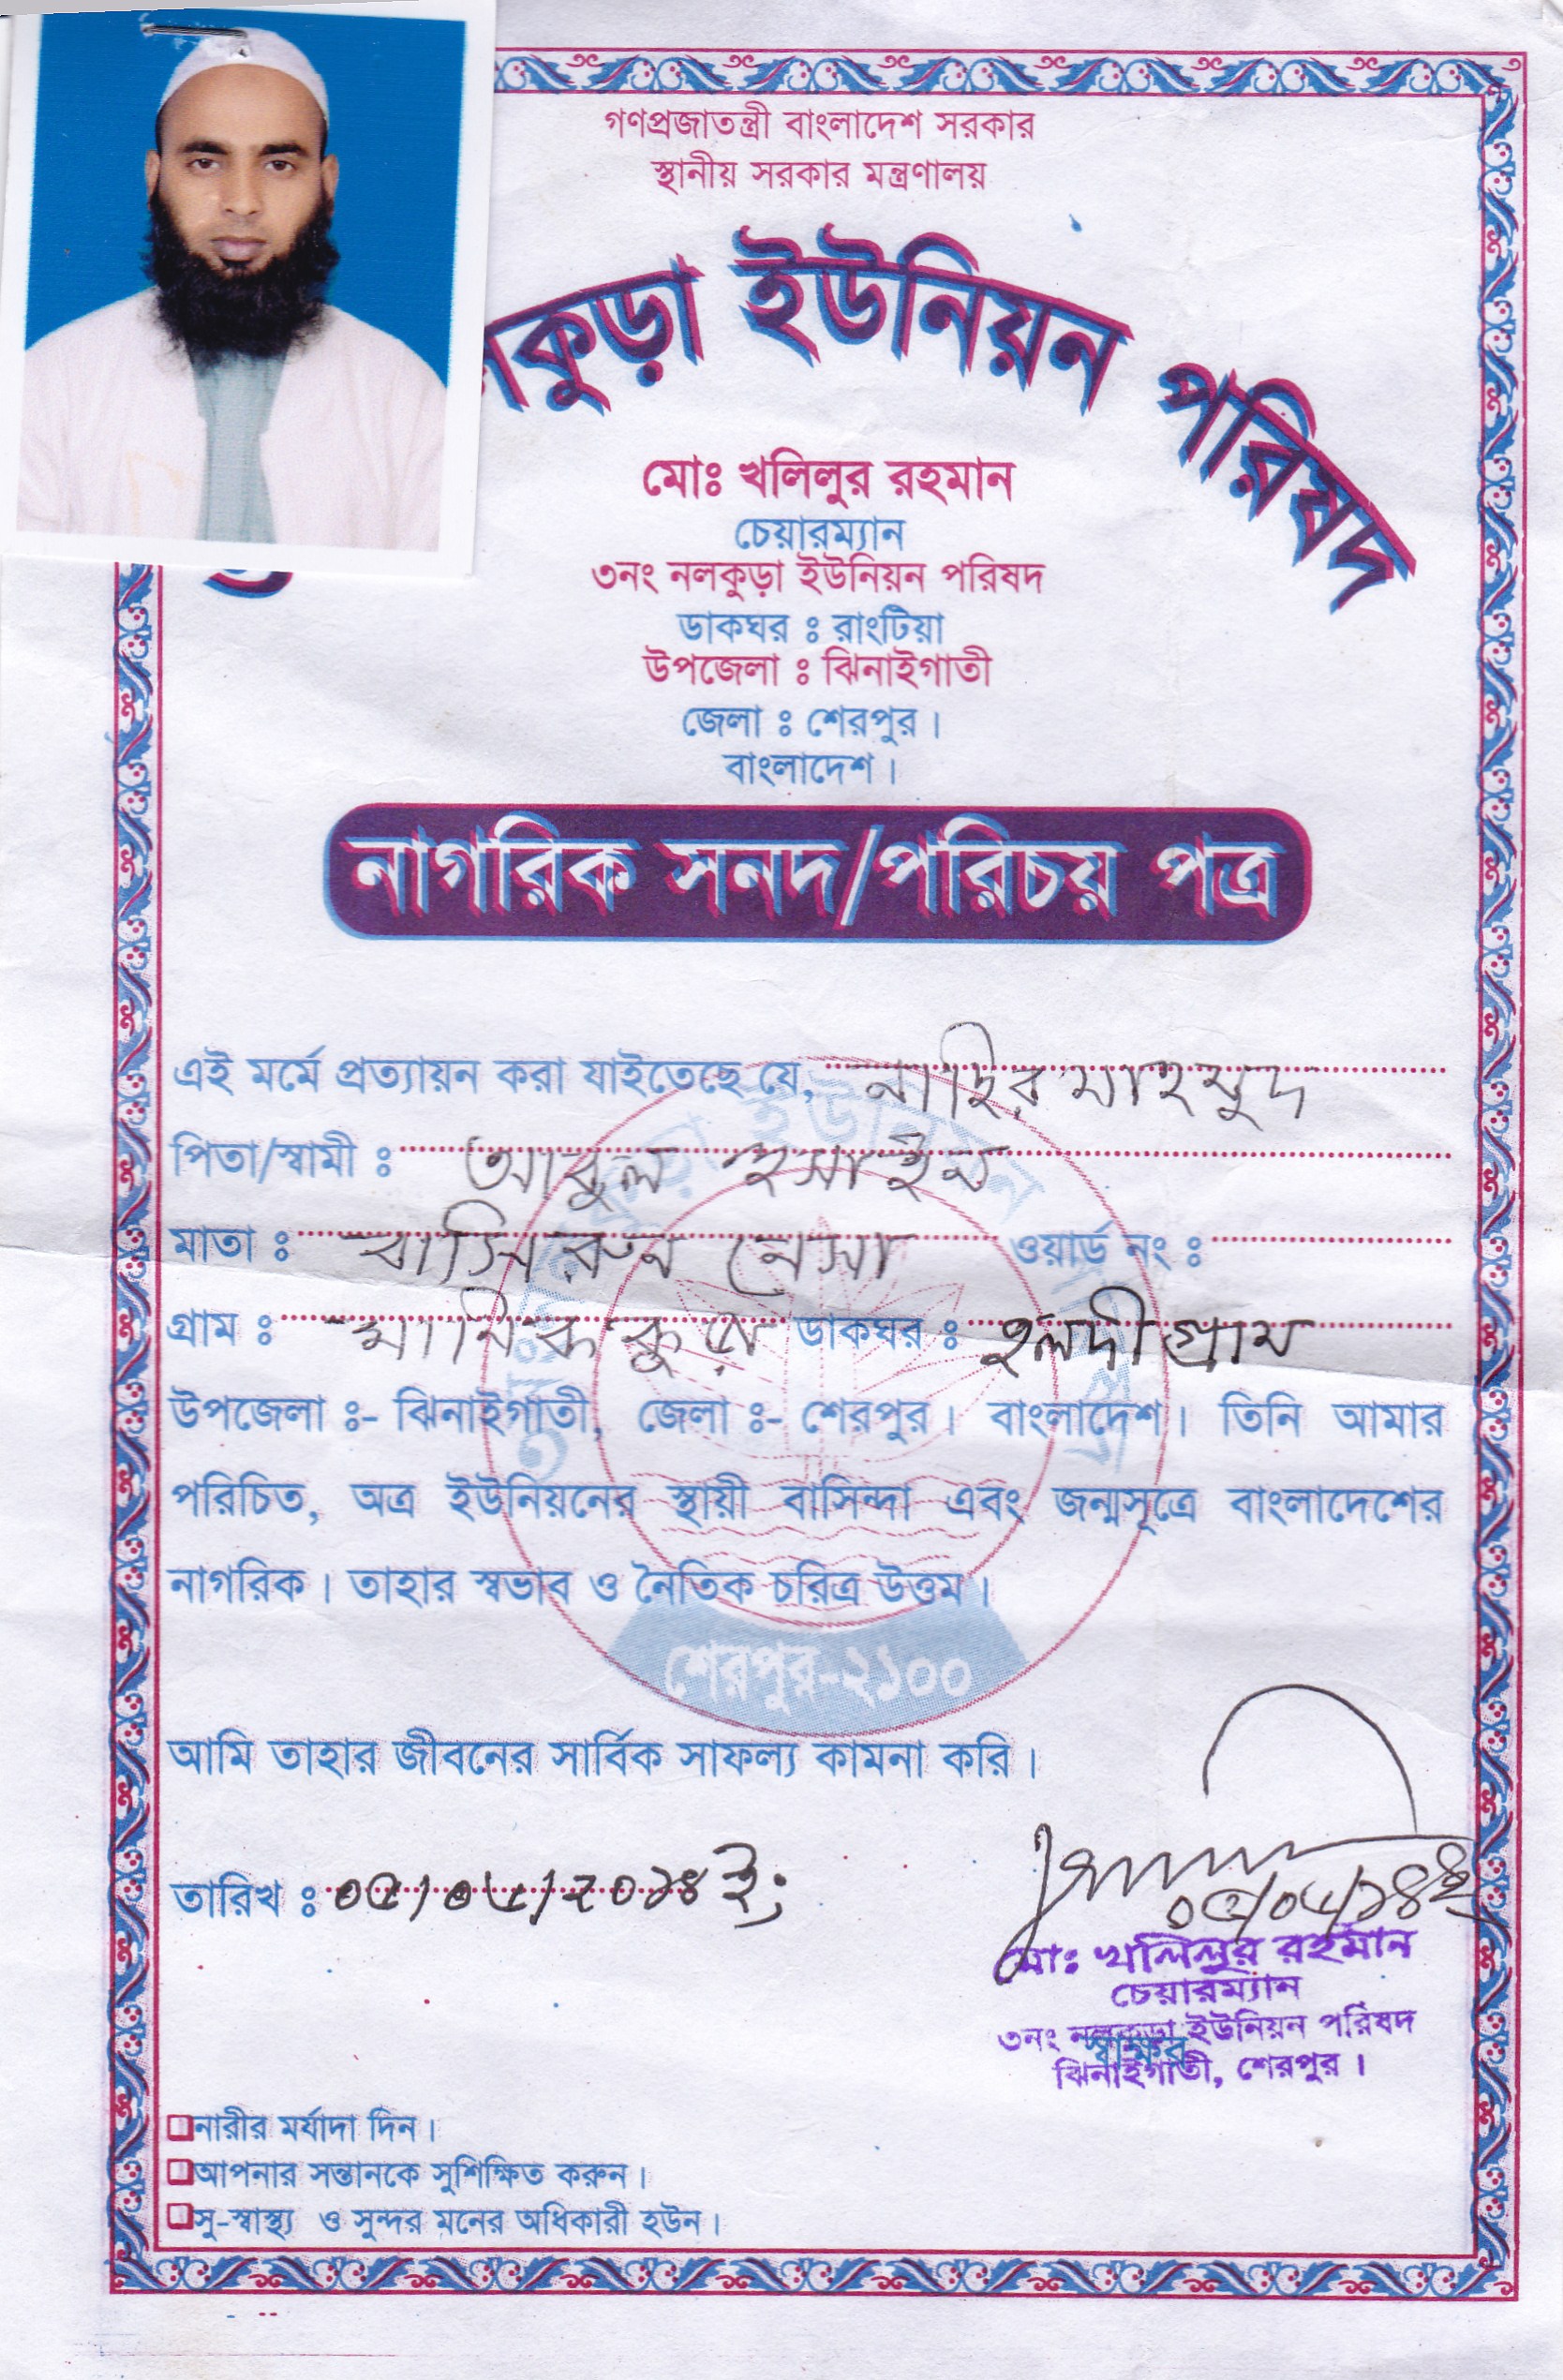 গণপ্রজাতন্ত্রী বাংলাদেশ সরকার
স্থানীয় সরকার মন্ত্রণালয়
কুড়া ইউনিয়ন পরিষদ
মোঃ খলিলুর রহমান
চেয়ারম্যান
৩নং নলকুড়া ইউনিয়ন পরিষদ
ডাকঘর ঃ রাংটিয়া
উপজেলা ঃ ঝিনাইগাতী
জেলা ঃ শেরপুর।
বাংলাদেশ।
নাগরিক সনদ/পরিচয় পত্র
এই মর্মে প্রত্যায়ন করা যাইতেছে যে, মাহমুদ
পিতা/স্বামী ঃ আবুল হুসাইন
মাতা ঃ বাসিরুন নেসা ওয়ার্ড নং ঃ
গ্রাম ঃ মানিককুড়া ডাকঘর ঃ হলদীগ্রাম
উপজেলা ঃ- ঝিনাইগাতী, জেলা ঃ- শেরপুর। বাংলাদেশ। তিনি আমার
পরিচিত, অত্র ইউনিয়নের স্থায়ী বাসিন্দা এবং জন্মসূত্রে বাংলাদেশের
নাগরিক। তাহার স্বভাব ও নৈতিক চরিত্র উত্তম।
শেরপুর-২১০০
আমি তাহার জীবনের সার্বিক সাফল্য কামনা করি।
তারিখ ঃ ০৫/০৮/২০১৪ ইং
০৫/০৮/১৪ইং
মোঃ খলিলুর রহমান
চেয়ারম্যান
৩নং নলকুড়া ইউনিয়ন পরিষদ
স্বাক্ষর
ঝিনাইগাতী, শেরপুর।
নারীর মর্যাদা দিন।
আপনার সন্তানকে সুশিক্ষিত করুন।
সু-স্বাস্থ্য ও সুন্দর মনের অধিকারী হউন।